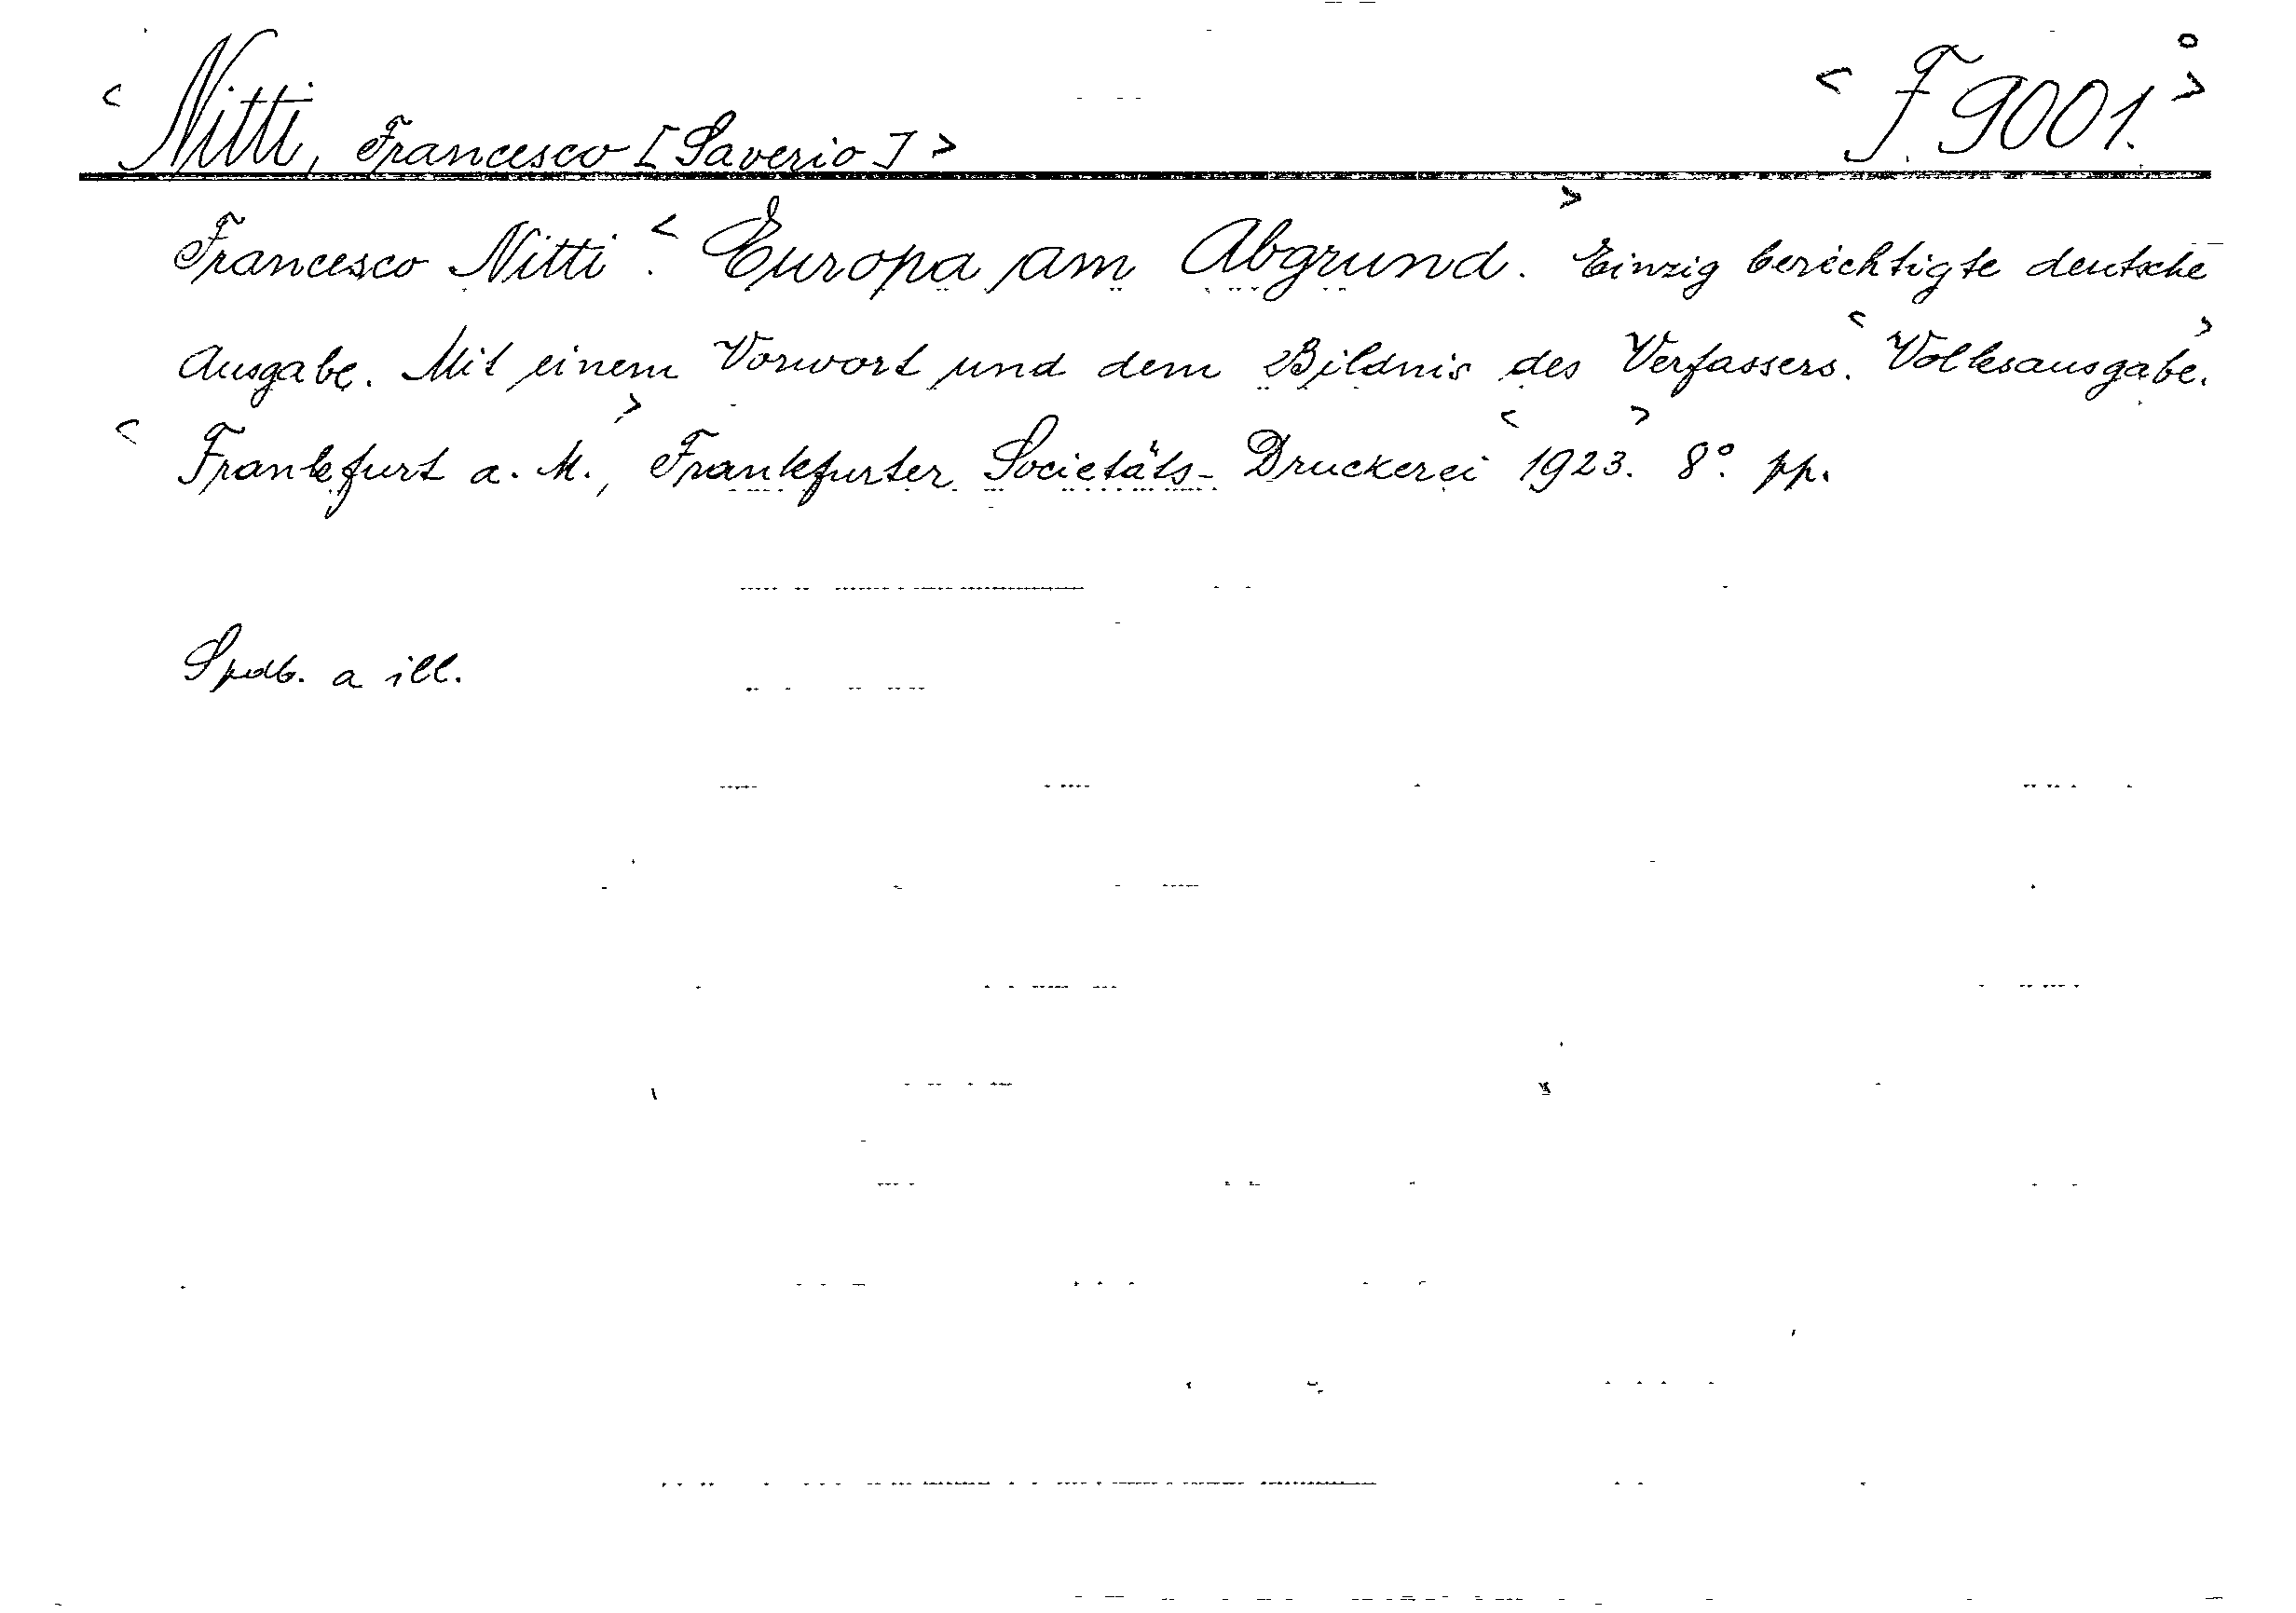 < Nitti, Francesco [Saverio] > < F 9001. >°
Francesco Nitti. < Europa am Abgrund. > Einzig berichtigte deutsche
Ausgabe. Mit einem Vorwort und dem Bildnis des Verfassers. < Volksausgabe. >
< Frankfurt a. M., > Frankfurter Societäts-Druckerei < 1923. > 8° pp.
Spdb. a ill.